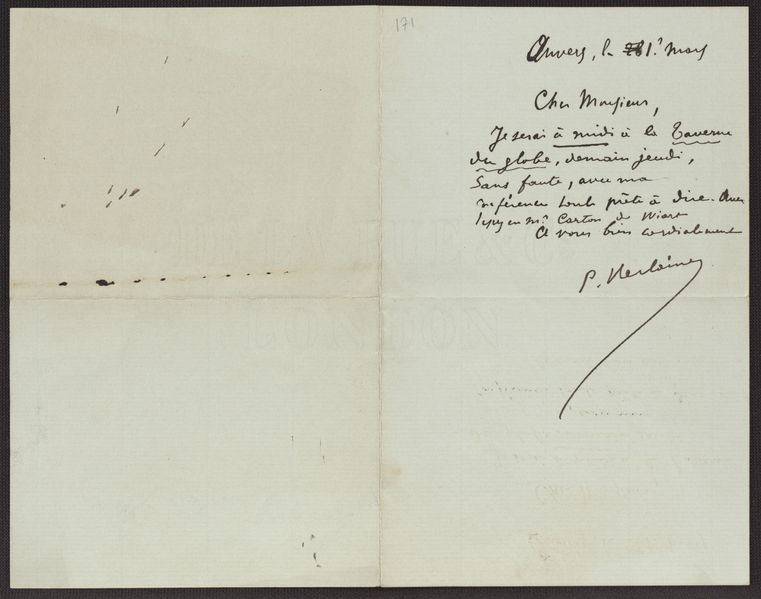 171
Anvers, le 1er mars
Cher Monsieur,
Je serai à midi à la Taverne
du globe, demain jeudi,
Sans faute, avec ma
référence toute prête à dire.
Mr. Carton de Wiart
A vous bien cordialement
P. Verlaine
LONDON